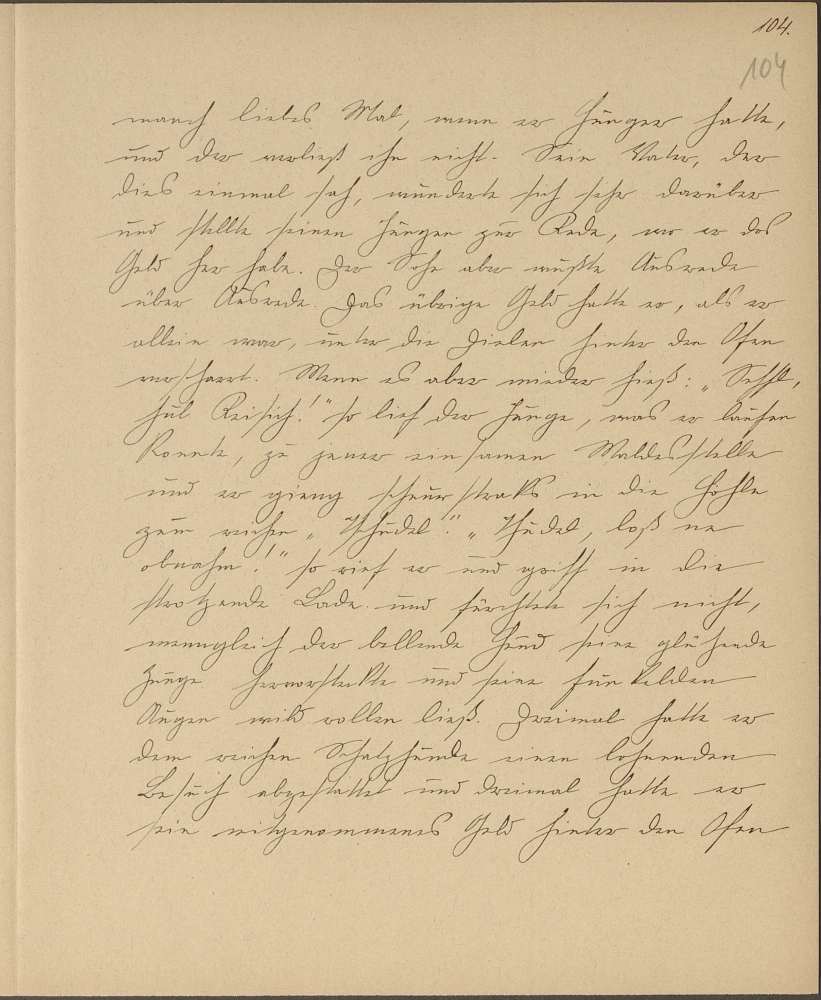 104.
104
manch liebes Mal, wenn er Hunger hatte,
und der verließ ihn nicht. Sein Vater, der
dies einmal sah, wunderte sich sehr darüber
und stellte seinen Jungen zur Rede, wo er das
Geld her habe. Der Sohn aber wußte Ausrede
über Ausrede. Das übrige Geld hatte er, als er
allein war, unter die Dielen hinter den Ofen
verscharrt. Wenn es aber wieder hieß: „
hul Reisich!" so lief der Junge, was er laufen
konnte, zu jener einsamen Waldesstelle
und er gieng schnurstraks in die Höhle
zum reichen „Thudel". „Thudel, loß ne
obnahm!" so rief er und griff in die
strotzende Lade und fürchtete sich nicht,
wenngleich der bellende Hund seine glühende
Zunge hervorsteckte und seine funkelden
Augen wild rollen ließ. Zweimal hatte er
dem reichen Schatzhunde einen lohnenden
Besuch abgestattet und dreimal hatte er
sein mitgenommenes Geld hinter den Ofen